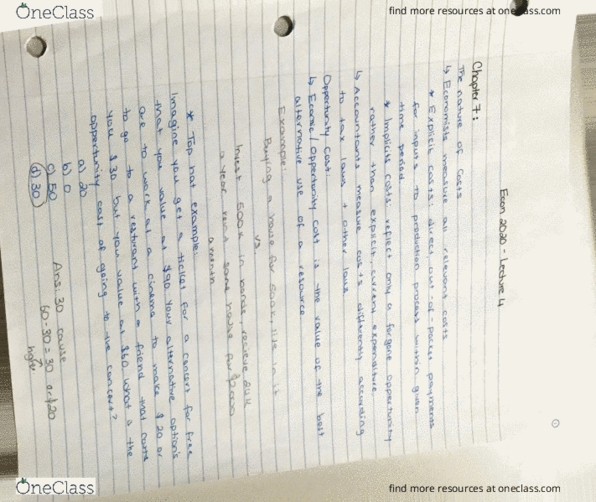 OneClass
find more resources at oneclass.com
Econ 2020 - Lecture 4
Chapter 7:
The nature of Costs
↳ Economists measure all relevant costs
* Explicit costs: direct, out-of-pocket payments
for inputs to production process within given
time period
* Implicit costs: reflect only a forgone opportunity
rather than explicit, current expenditure
↳ Accountants measure costs differently according
to tax laws + other laws
Opportunity Cost:
↳ Economic/Opportunity cost is the value of the best
alternative use of a resource
Example:
Buying a house for 500k, live in it
vs.
Invest 500k in bonds, recieve
a year rent same house for $2000
a month
* Top hat example:
Imagine you get a ticket for a concert for free
that you value at $90 your alternative option's
are to work at a cinema to make $20 or
to go to a resturant with a friend that costs
you $30 but you value at $60. What is the
opportunity cost of going to the concert?
a) 20
b) 0
c) 50
d) 30
Ans: 30 cause
60-30=30 or $20
higher
OneClass
find more resources at oneclass.com